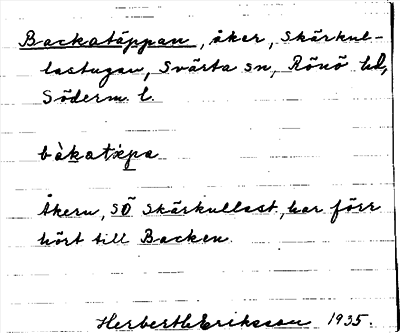 Backatäppan, åker, Skärkul-
lastugan, Svärta sn, Rönö hd,
Söderm. l.
bàkatx̀pa
Åkern, SÖ Skärkullast., har förr
hört till Backen.
Herbert Eriksson 1935.